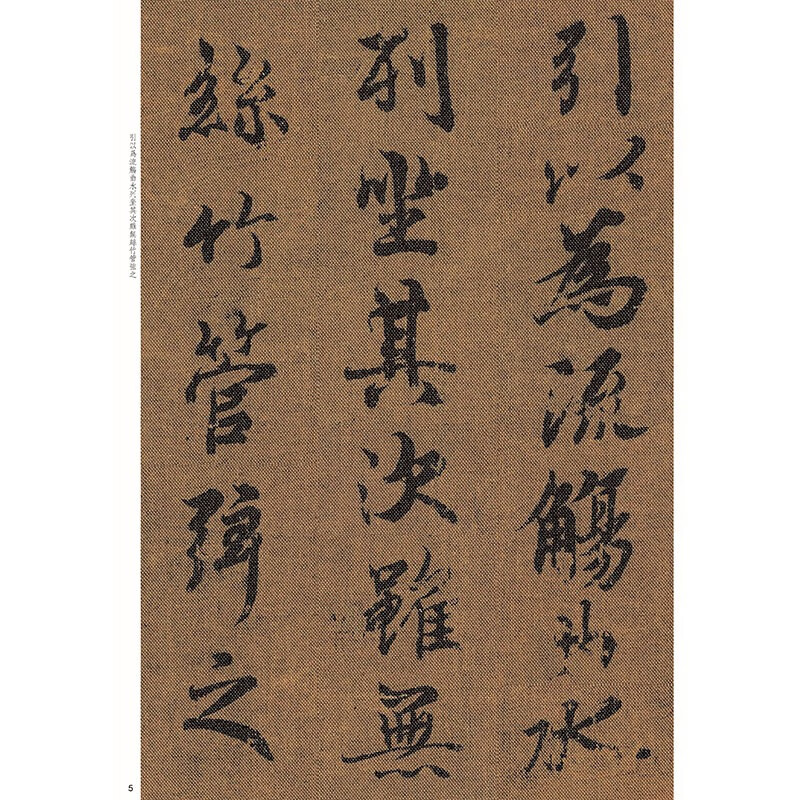 引以為流觴曲水
列坐其次雖無
絲竹管弦之
引以為流觴曲水列坐其次雖無絲竹管弦之
5